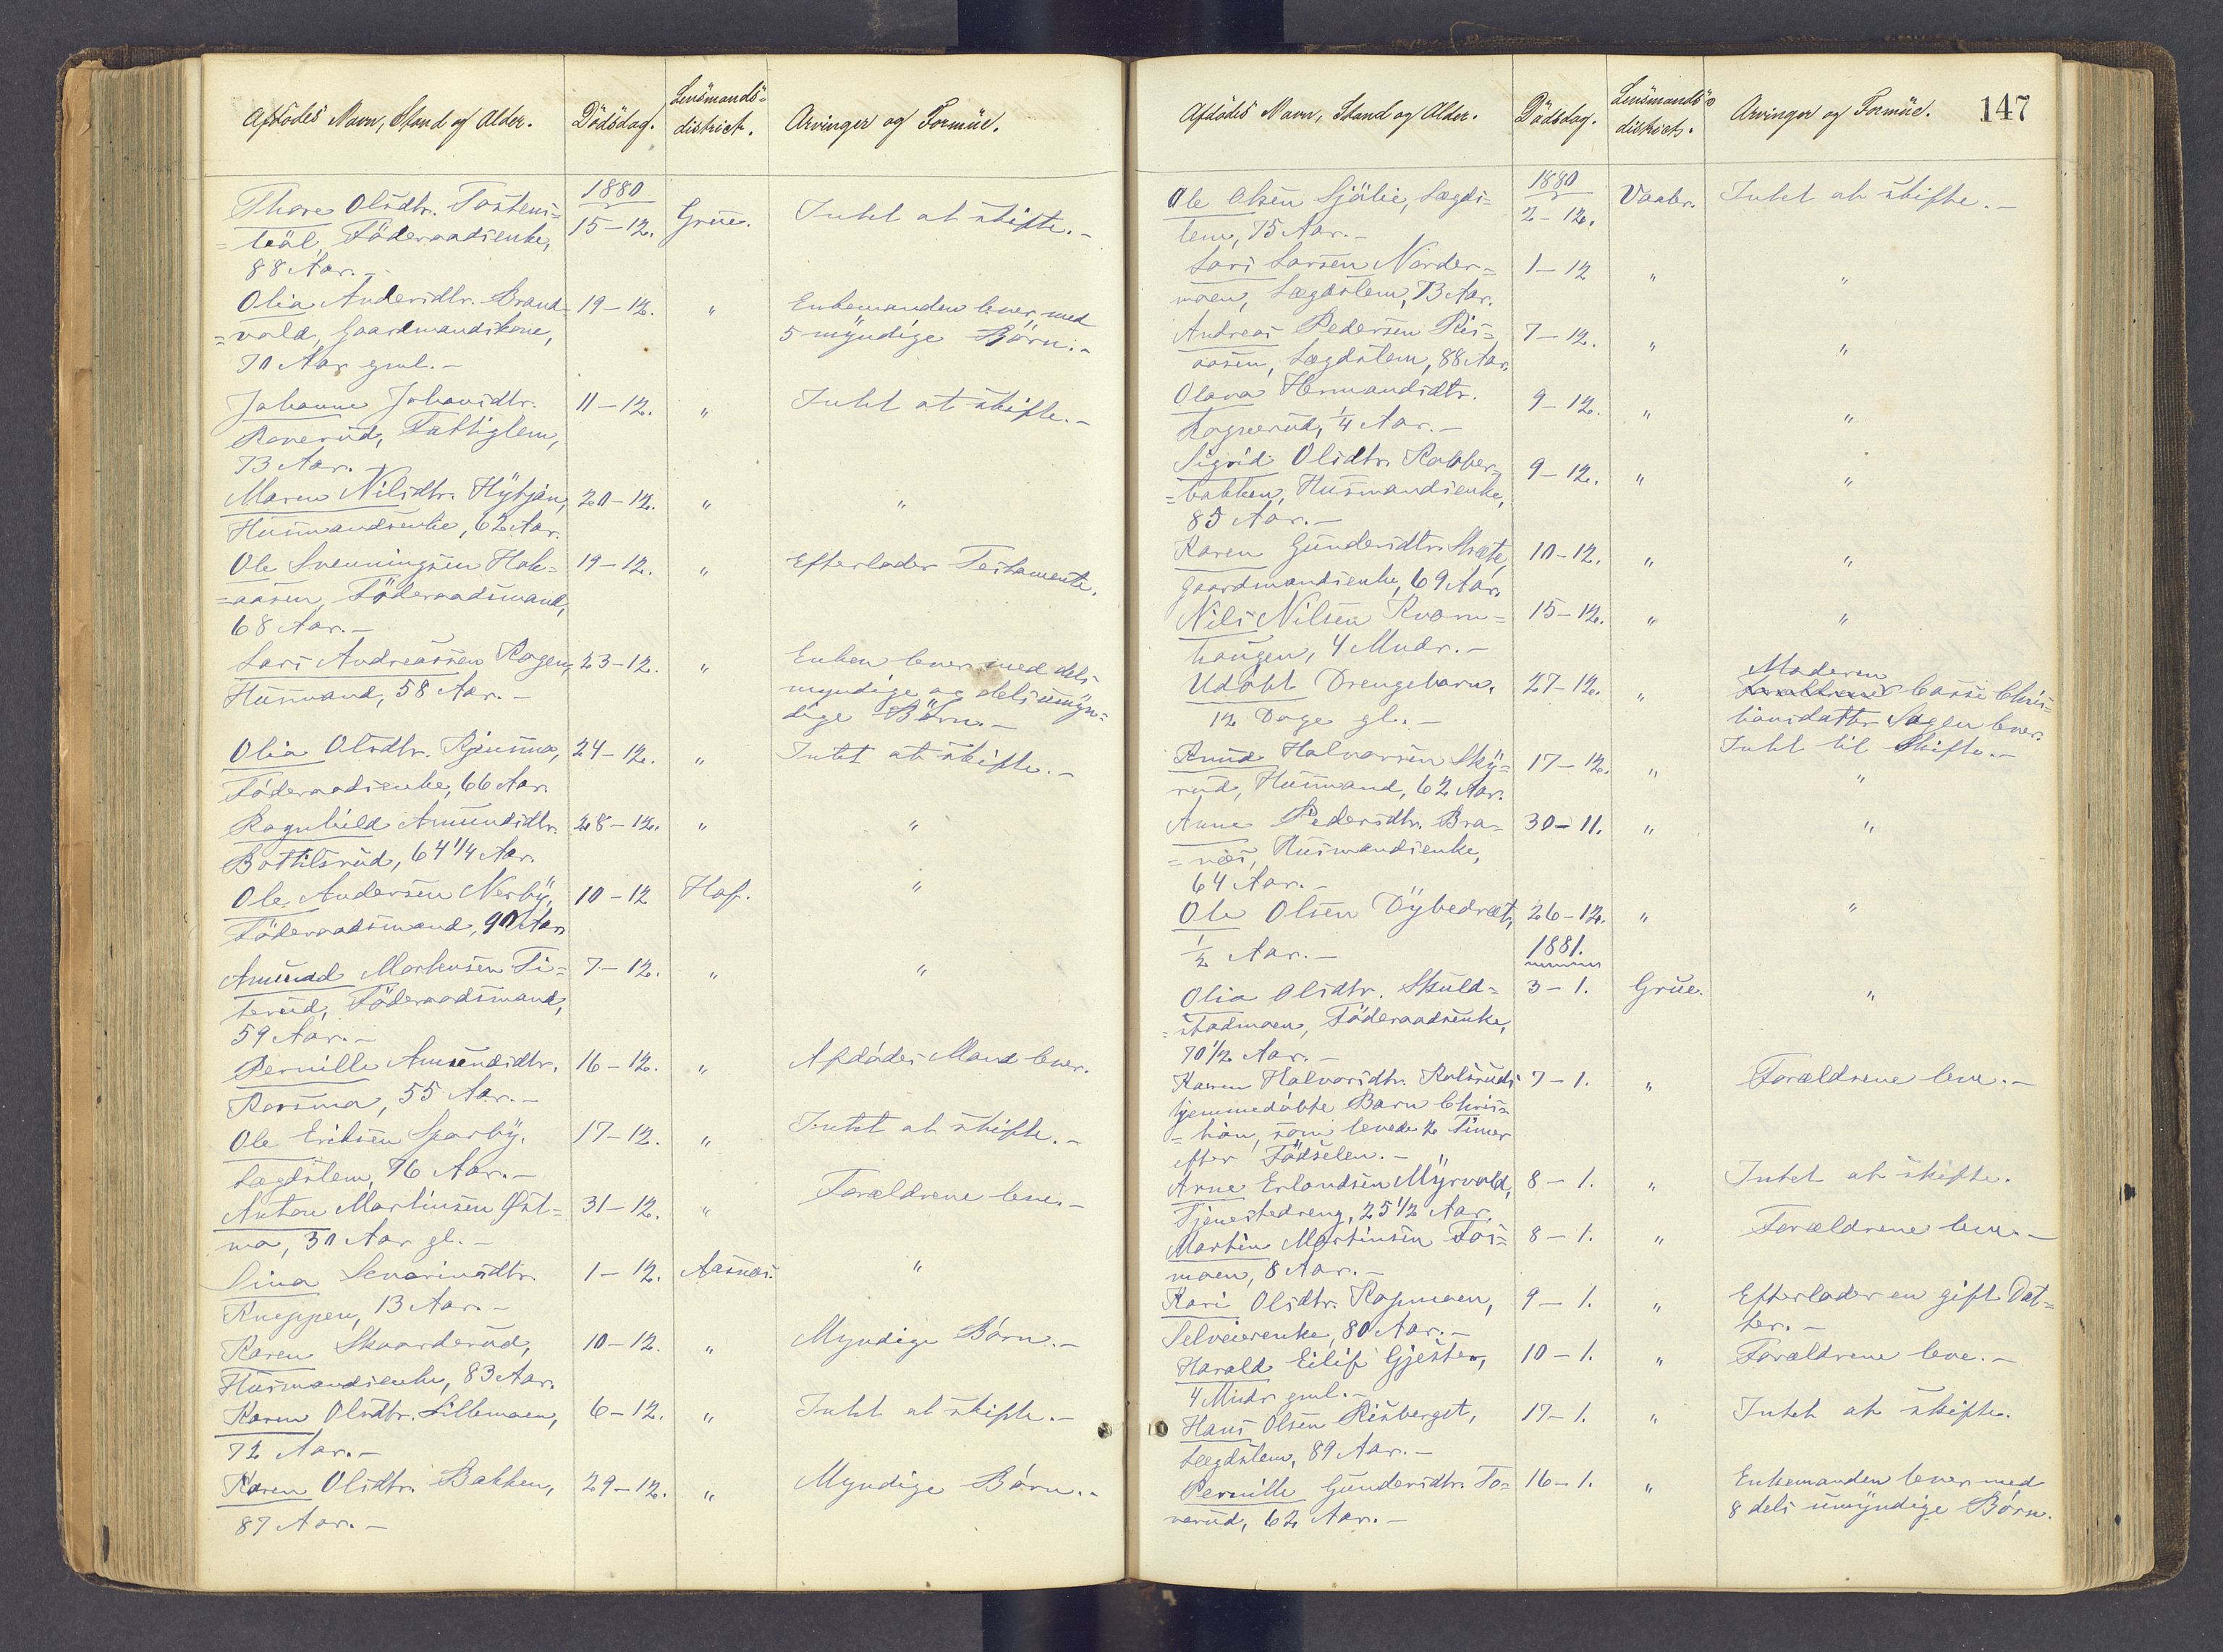 Afdödes Navn, Stand og Alder.
Dödsdag.
Lensmands=
district.
Arvinger og Formüe.
1880
Thore Olsdtr. Tostens=
15-12.
Grue.
Intet at skifte.-
Föderaadsenke,
88 Aar.-
Olia Andersdtr. Brand=
19-12.
"
Enkemanden lever med
=vold, Gaardmandskone,
5 myndige Börn.-
70 Aar gml.-
Johanne Johansdtr.
11-12.
"
Intet at skifte.-
Roverud, Fattiglem,
73 Aar.
Maren Nilsdtr. Hytjan,
20-12.
"
"
Husmandsenke, 62 Aar.
Ole Svenningsen Hok=
19-12.
"
Efterlader Testamente.
=aasen, Föderaadsmand,
68 Aar.-
Lars Andreassen Rogen,
23-12.
"
Enken lever med dels
Husmand, 58 Aar.-
myndige og dels umyn=
dige Börn.-
Olia Olsdtr. Grinna,
24-12.
"
Intet at skifte.-
Föderaadsenke, 66 Aar.
Ragnhild Amundsdtr.
28-12.
"
"
Bottilsrud, 64 1/4 Aar.
Ole Andersen Nerby,
10-12
Hof.
"
Föderaadsmand, 90 Aar.
Amund Mortensen Ti=
7-12.
"
"
terud, Föderaadsmand,
59 Aar.-
Pernille Amundsdtr.
16-12.
"
Afdödes Mand lever.
Rorsma, 55 Aar.-
Ole Eriksen Sparby,
17-12.
"
Intet at skifte.-
Lægdslem, 76 Aar.-
Anton Martinsen Øst=
31-12.
"
Forældrene leve.-
ma, 30 Aar gl.-
Sina Severinsdtr.
1-12.
Aasnæs.
"
Kneppen, 13 Aar.-
Karen Skaarderud,
10-12.
"
Myndige Börn.-
Husmandsenke, 83 Aar.
Karen Olsdtr. Lillemoen,
6-12.
"
Intet at skifte.-
72 Aar.-
Karen Olsdtr. Bakken,
29-12.
"
Myndige Börn.-
87 Aar.-
147
Afdödes Navn, Stand og Alder.
Dödsdag.
Lensmands=
district.
Arvinger og Formüe.
1880
Ole Olsen Sjölie, Lægds=
2-12.
Vaaler.
Intet at skifte.-
lem, 75 Aar.-
Lars Larsen Norder=
1-12
"
"
moen, Lægdslem, 73 Aar.
Andreas Pedersen Ris=
7-12.
"
"
aasen, Lægdslem, 88 Aar.
Olava Hermandsdtr.
9-12.
"
"
Rognerud, 1/4 Aar.-
Sigrid Olsdtr. Kobber=
9-12.
"
"
=bakken, Husmandsenke,
85 Aar.-
Karen Gundersdtr. Stræte,
10-12.
"
"
Gaardmandsenke, 69 Aar.
Nils Nilsen Kvarn=
15-12.
"
"
haugen, 4 Mndr.-
Udöbt Drengebarn,
27-12.
"
Moderen
Forældrene Casse Chris=
12 Dage gl.-
tiansdatter Sagen lever.
Intet til Skifte.-
Knud Halvorsen Sky=
17-12.
"
"
rud, Husmand, 62 Aar.
Anne Pedersdtr. Bra=
30-11.
"
"
=næs, Husmandsenke,
64 Aar.-
Ole Olsen Dybedræt,
26-12.
"
"
1/2 Aar.-
1881.
Olia Olsdtr. Skuld=
3-1.
Grue.
"
=stadmoen, Föderaadsenke,
70 1/2 Aar.-
Karen Halvorsdtr. Rolsruds
7-1.
"
Forældrene leve.-
hjemmedöbte Barn Chris=
=tian, som levede 2 Timer
efter Födselen.-
Arne Erlandsen Myrvold,
8-1.
"
Intet at skifte.
Tjenestedreng, 25 1/2 Aar.
Martin Martinsen Fos=
8-1.
"
Forældrene leve.-
moen, 8 Aar.-
Kari Olsdtr. Kopmoen,
9-1.
"
Efterlader en gift Dat=
Selveierenke, 80 Aar.-
ter.-
Harald Eilif Gjester,
10-1.
"
Forældrene leve.-
4 Mndr gml.-
Hans Olsen Risberget,
17-1.
"
Intet at skifte.
Lægdslem, 89 Aar.-
Pernille Gundersdtr. To=
16-1.
"
Enkemanden lever med
verud, 62 Aar.-
8 dels umyndige Börn.